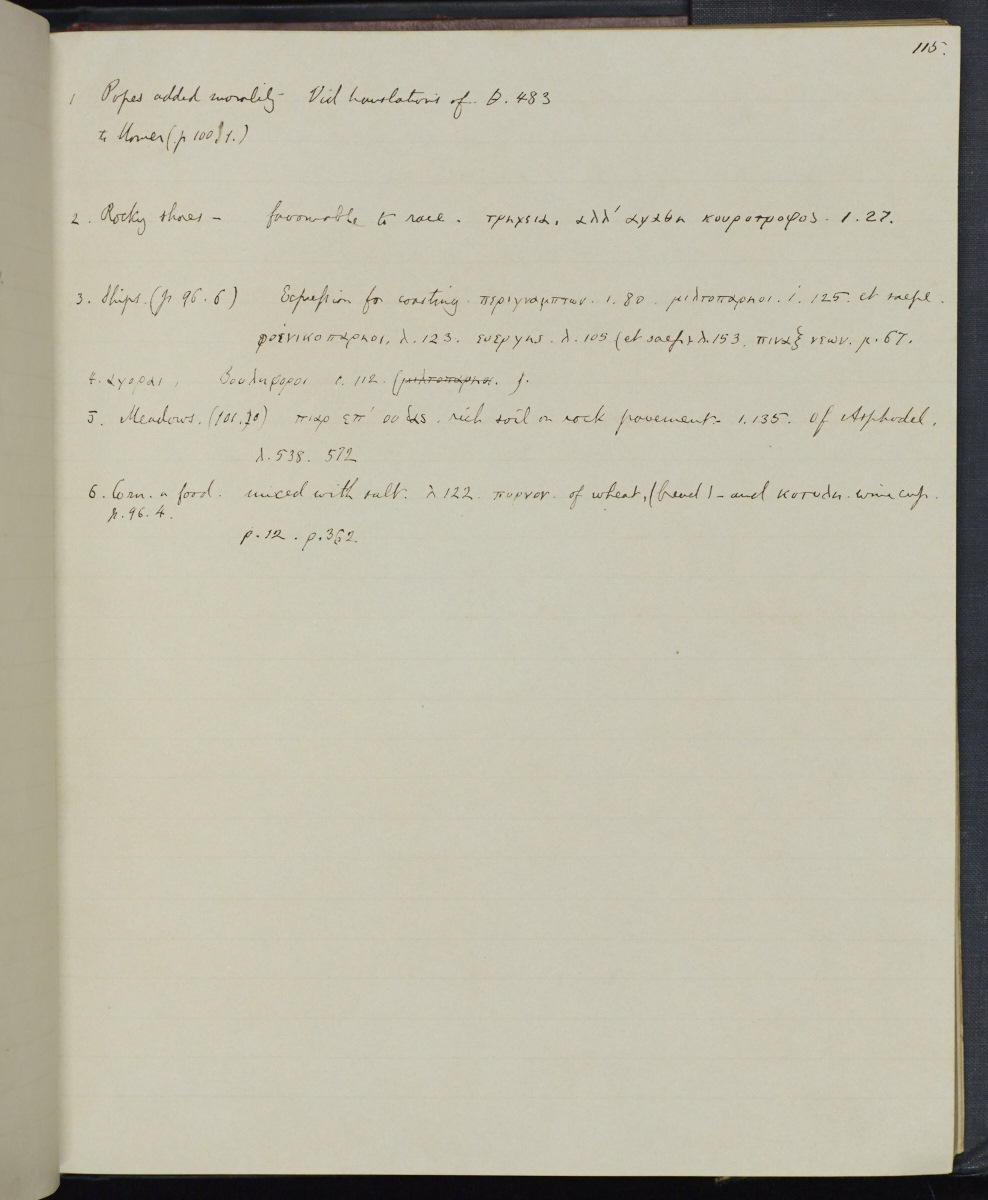 115.
1 Popes added morality Vid translations of θ. 483
to Homer (p 100 1.)
2. Rocky shores – favourable to race. τρηχεια, αλλ' αγαθη κουροτροφος. ι. 27.
3. Ships. (p 96. 6) Expression for coasting. περιγναμπτων. ι. 80. μιλτοπαρηοι. ι. 125. et saepe.
φοινικοπαρηοι. λ. 123. ευεργης. λ. 105 (et saepe) λ. 153. πιναξ νεων. μ. 67.
4. αγοραι, βουληφοροι ι. 112. (μιλτοπαρηοι. ).
5. Meadows. (101. 10) πιαρ επ' ουδας. rich soil on rock pavement – ι. 135. Of Asphodel.
λ. 538. 572
6. Corn. a food. mixed with salt. λ 122. πυρνον. of wheat, (bread) – and κοτυλη. wine cup.
p. 96. 4.
ρ. 12. ρ. 362.